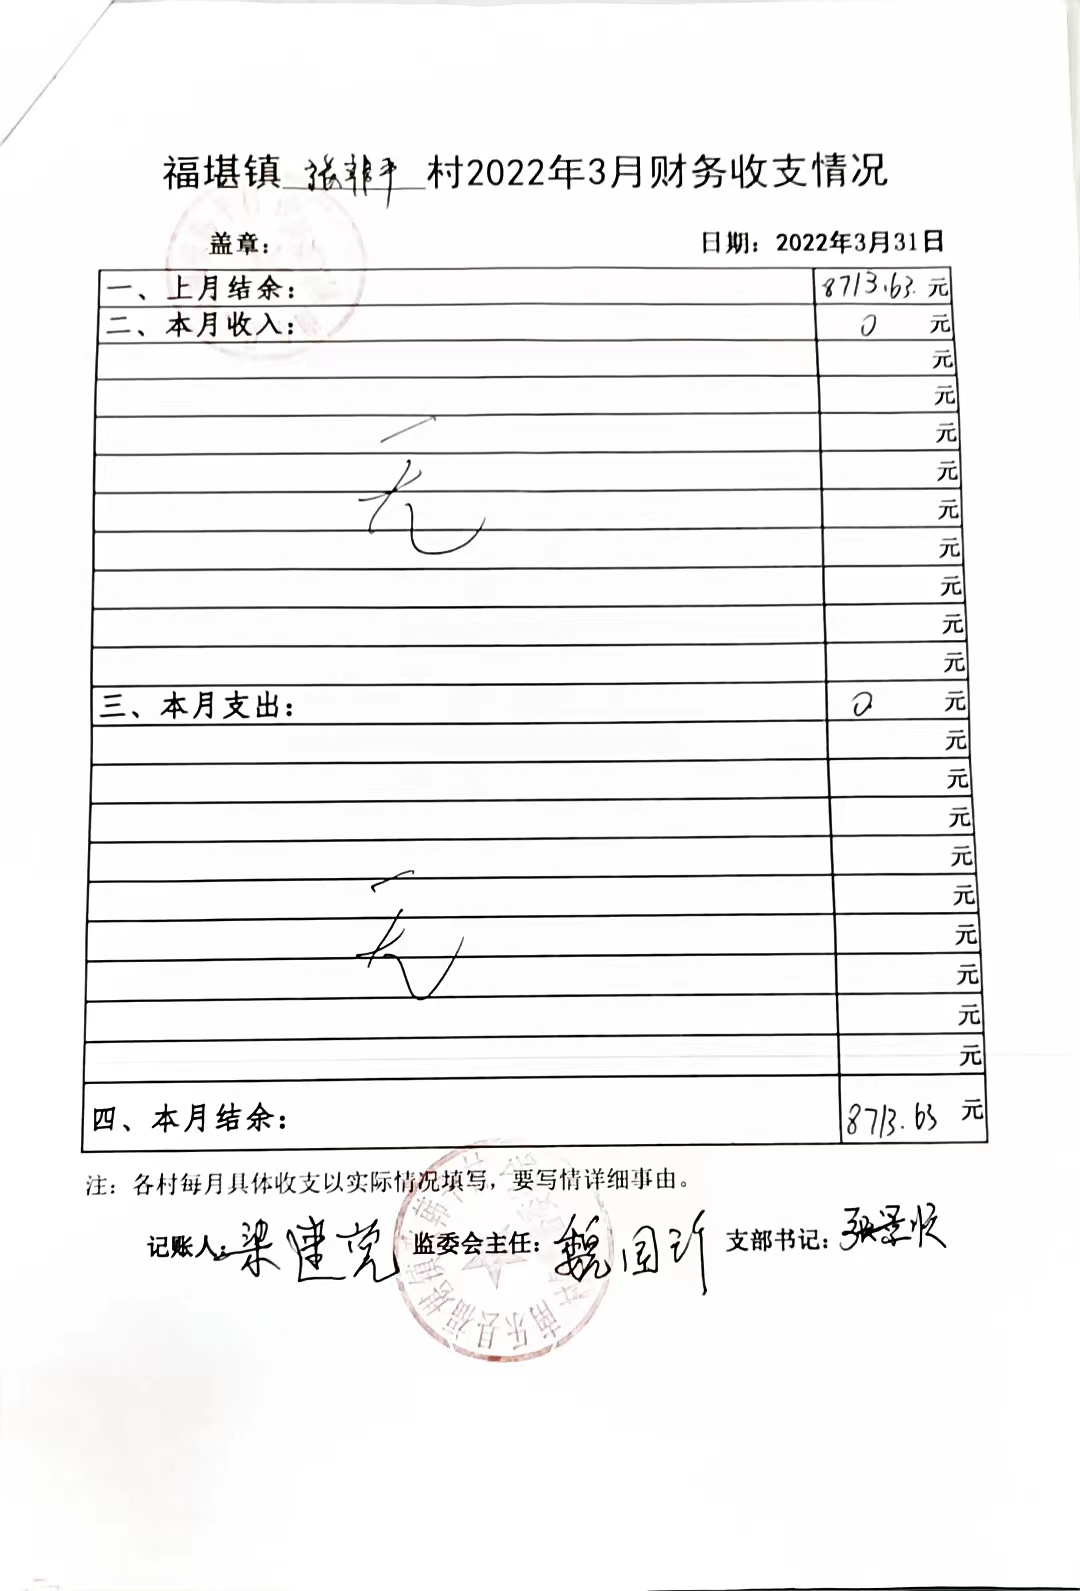 福堪镇 张韩平 村2022年3月财务收支情况
盖章: 日期: 2022年3月31日
一、上月结余: 8713.63 元
二、本月收入: 0 元
元
元
元
元
元
元
元
元
元
无
三、本月支出: 0 元
元
元
元
元
元
元
元
元
元
无
四、本月结余: 8713.63 元
注: 各村每月具体收支以实际情况填写, 要写情详细事由。
记账人: 梁建党 监委会主任: 魏国 支部书记: 张景
南乐县福堪镇